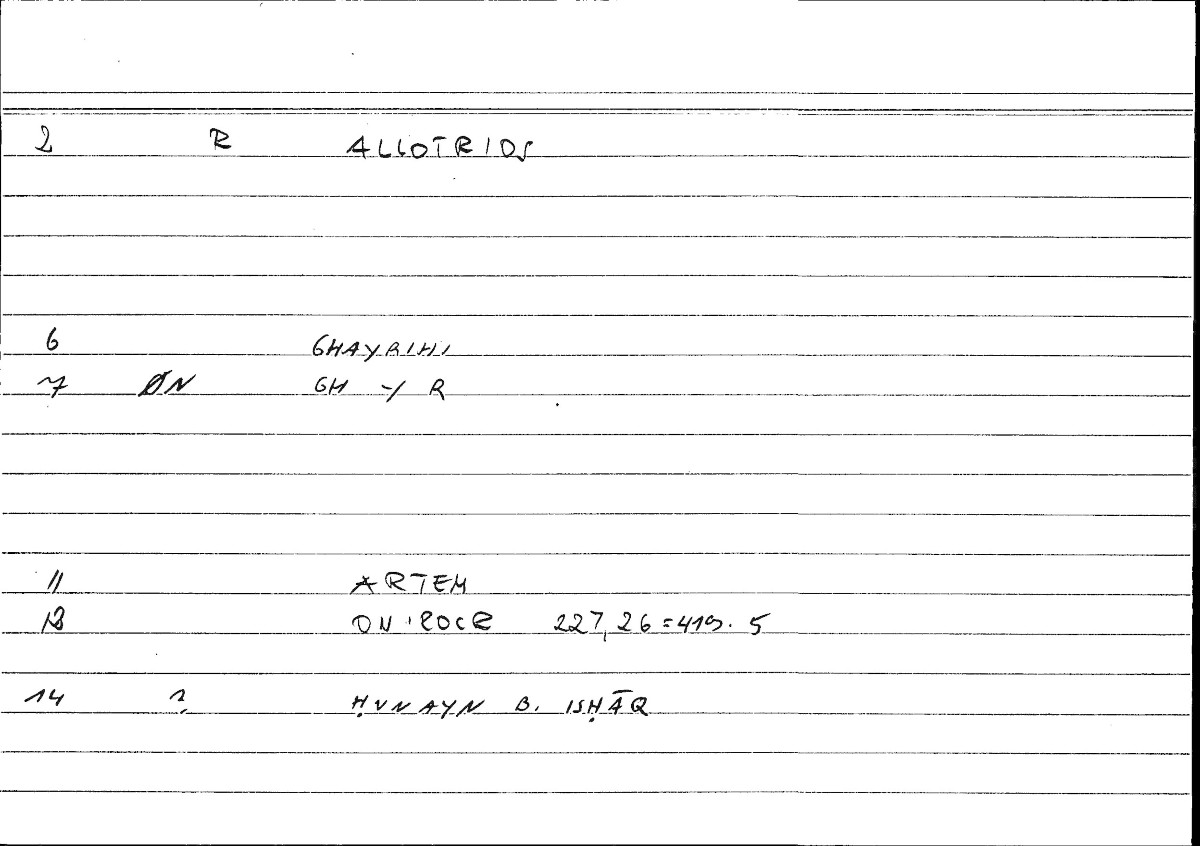 2 R ALLOTRIOS
6 GHAYRIHI
7 ØN GH Y R
11 ARTEM
12 ONIROCR 227,26=419.5
14 ? ḤUNAYN B. ISḤĀQ